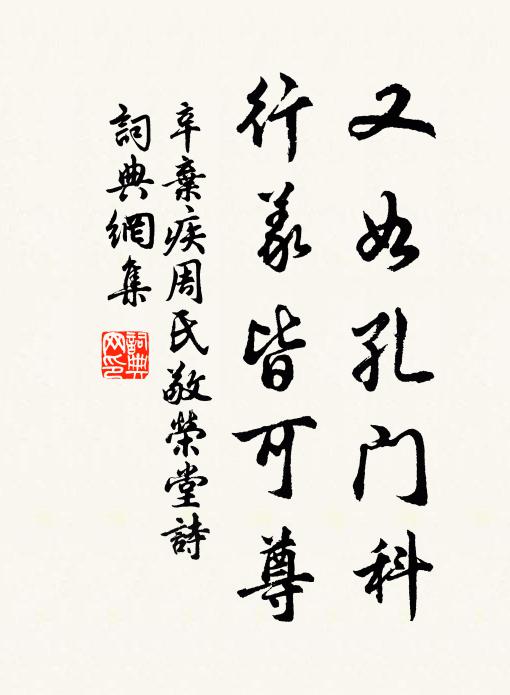 又如孔门科
行義皆可尊
辛棄疾周氏敬榮堂詩
詞典網集
詞典网印